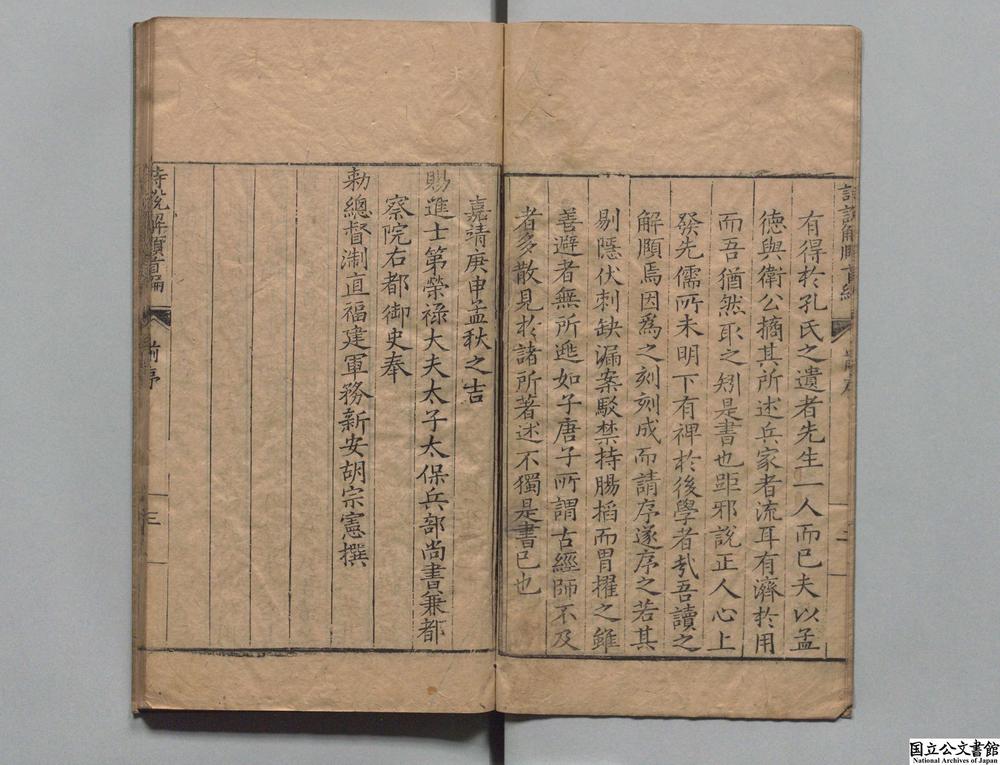 有得於孔氏之遺者先生一人而已夫以孟
德與衛公摘其所述兵家者流耳有濟於用
而吾猶然取之矧是書也距邪說正人心上
發先儒所未明下有裨於後學者哉吾讀之
解頤焉因爲之刻刻成而請序遂序之若其
剔隱伏刺缺漏案駁禁持腸搯而胃擢之雖
善避者無所遁如子唐子所謂古經師不及
者多散見於諸所著述不獨是書已也
嘉靖庚申孟秋之吉
賜進士第榮祿大夫太子太保兵部尚書兼都
察院右都御史奉
勑總督浙直福建軍務新安胡宗憲撰
詩說解頤首編
前序
三
国立公文書館
National Archives of Japan